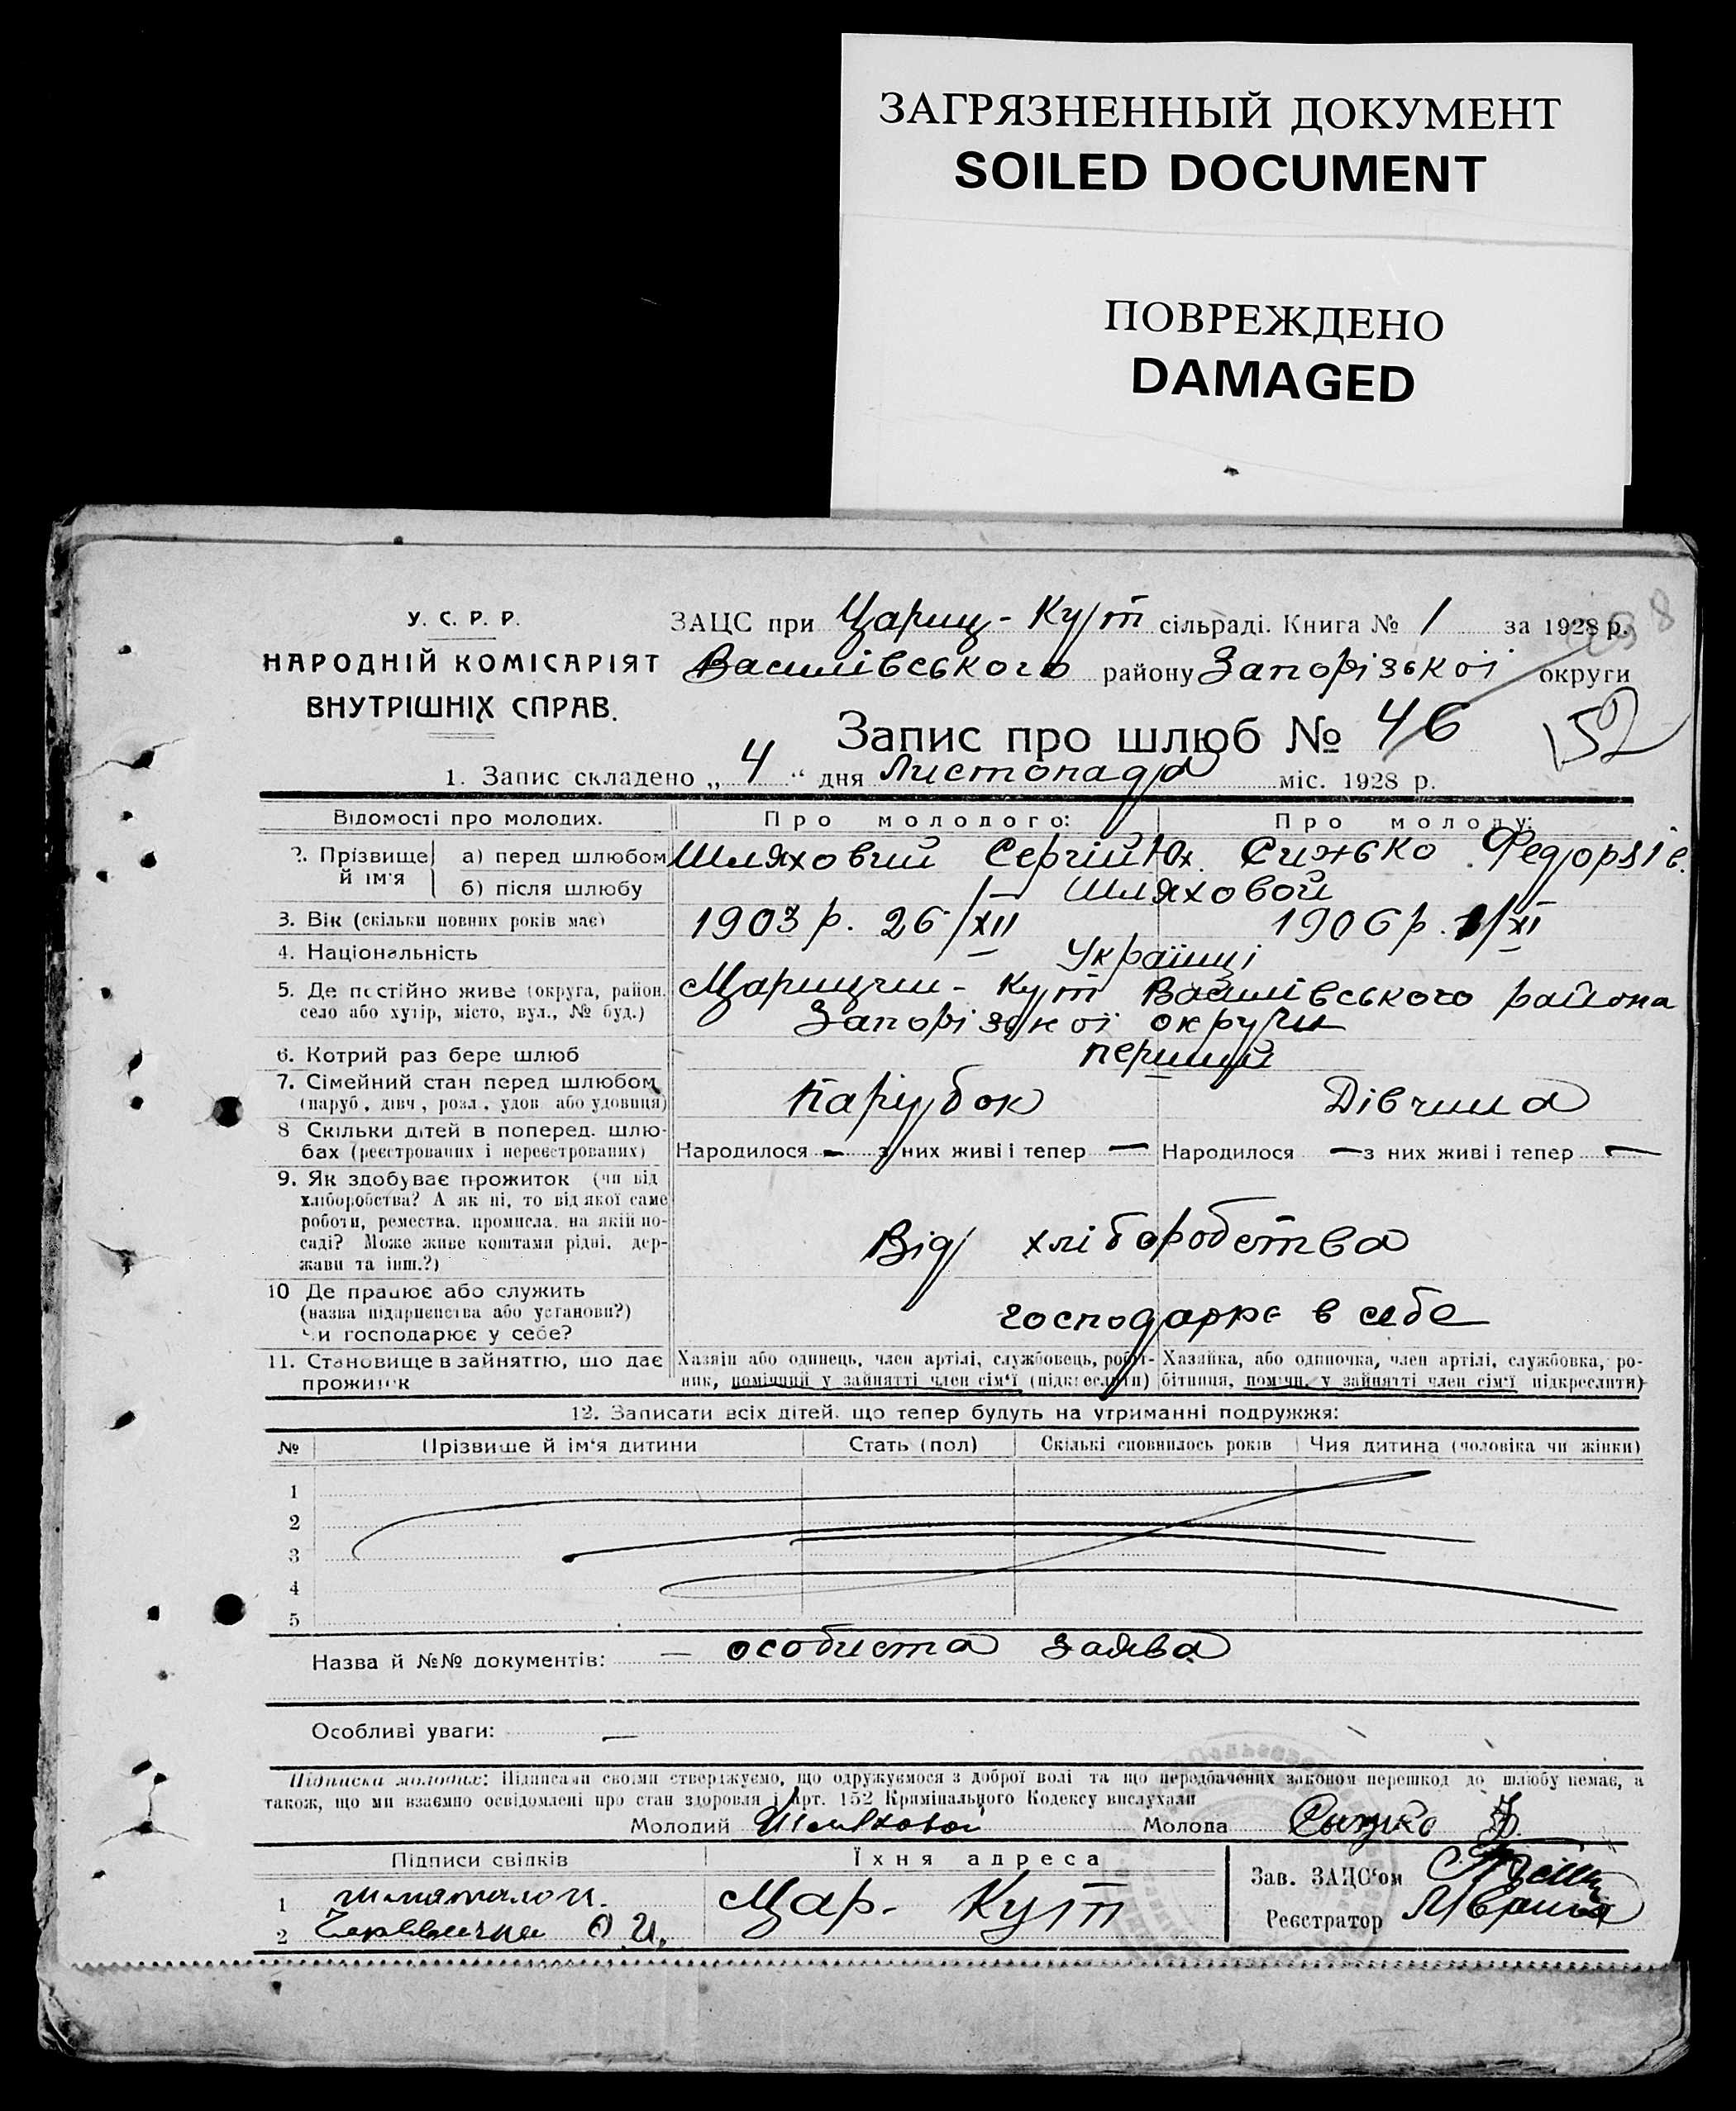 ЗАГРЯЗНЕННЫЙ ДОКУМЕНТ
SOILED DOCUMENT
ПОВРЕЖДЕНО
DAMAGED
У. С. Р. Р.
НАРОДНІЙ КОМІСАРІЯТ
ВНУТРІШНІХ СПРАВ.
ЗАЦС при Цариц-Кут сільраді. Книга № 1 за 1928 р.
Василівського району Запорізької округи
Запис про шлюб № 46
152
1. Запис складено „ 4 “ дня Листопада міс. 1928 р.
Відомості про молодих. Про молодого: Про молоду:
2. Прізвище й ім'я а) перед шлюбом Шляховий Сергій Юх. Сижько Федорзів.
б) після шлюбу Шляховой
3. Вік (скільки повних років має) 1903 р. 26/XII 1906 р. 1/XI
4. Національність Українці
5. Де постійно живе (округа, район, Царицин-Кут Василівського района
село або хутір, місто, вул., № буд.) Запорізької округи
6. Котрий раз бере шлюб перший
7. Сімейний стан перед шлюбом Парубок Дівчина
(паруб., дівч., розл., удов. або удовиця)
8 Скільки дітей в поперед. шлю-
бах (реєстрованих і нереєстрованих) Народилося — з них живі і тепер — Народилося — з них живі і тепер —
9. Як здобуває прожиток (чи від
хліборобства? А як ні, то від якої саме
роботи, ремества, промисла, на якій по-
саді? Може живе коштами рідні, дер- Від хліборобства
жави та інш.?)
10 Де працює або служить
(назва підприємства або установи?) господарює в себе
Чи господарює у себе?
11. Становище в зайняттю, що дає Хазяїн або одинець, член артілі, службовець, робіт- Хазяйка, або одиночка, член артілі, службовка, ро-
прожиток ник, помічний у зайнятті член сім'ї (підкреслити) бітниця, помічн. у зайнятті член сім'ї підкреслити)
12. Записати всіх дітей, що тепер будуть на утриманні подружжя:
№ Прізвище й ім'я дитини Стать (пол) Скількі сповнилось років Чия дитина (чоловіка чи жінки)
1
2
3
4
5
Назва й №№ документів: — особиста заява
Особливі уваги: —
Підписка молодих: Підписами своїми стверджуємо, що одружуємося з доброї волі та що передбачених законом перешкод до шлюбу немає, а
також, що ми взаємно освідомлені про стан здоровля і Арт. 152 Кримінального Кодексу вислухали
Молодий Шляховой Молода Сыжко Ф.
Підписи свідків Їхня адреса Зав. ЗАЦС'ом
1
2 О. И. Цар. Кут Реєстратор